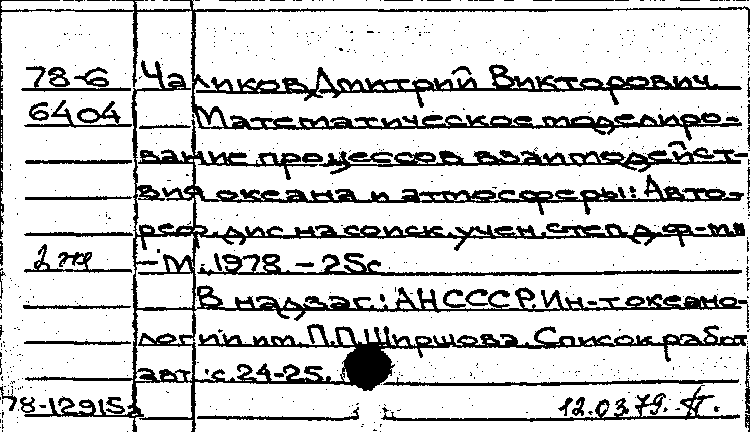 78-6 Чаликов Дмитрий Викторович.
6404 Математическое моделиро-
вание процессов взаимодейст-
вия океана и атмосферы: Авто-
реф. дис на соиск. учен. степ. д. ф-м.н
2 экз – М., 1978. – 25с
В надзаг.: АН СССР. Ин-т океано-
логии им. П.П. Ширшова. Список работ
авт.: с. 24-25.
78-12915а 12.03.79.